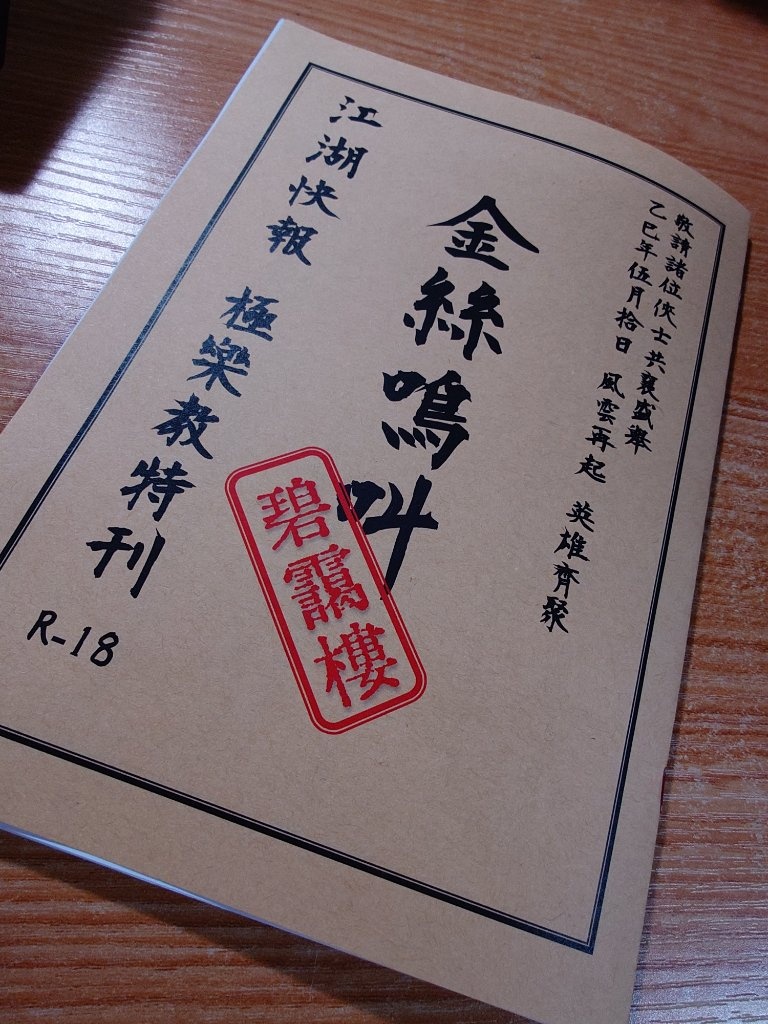 敬請諸位俠士共襄盛舉
乙巳年伍月拾日 風雲再起 英雄齊聚
金絲鳴叫
碧靄樓
江湖快報 極樂教特刊
R-18